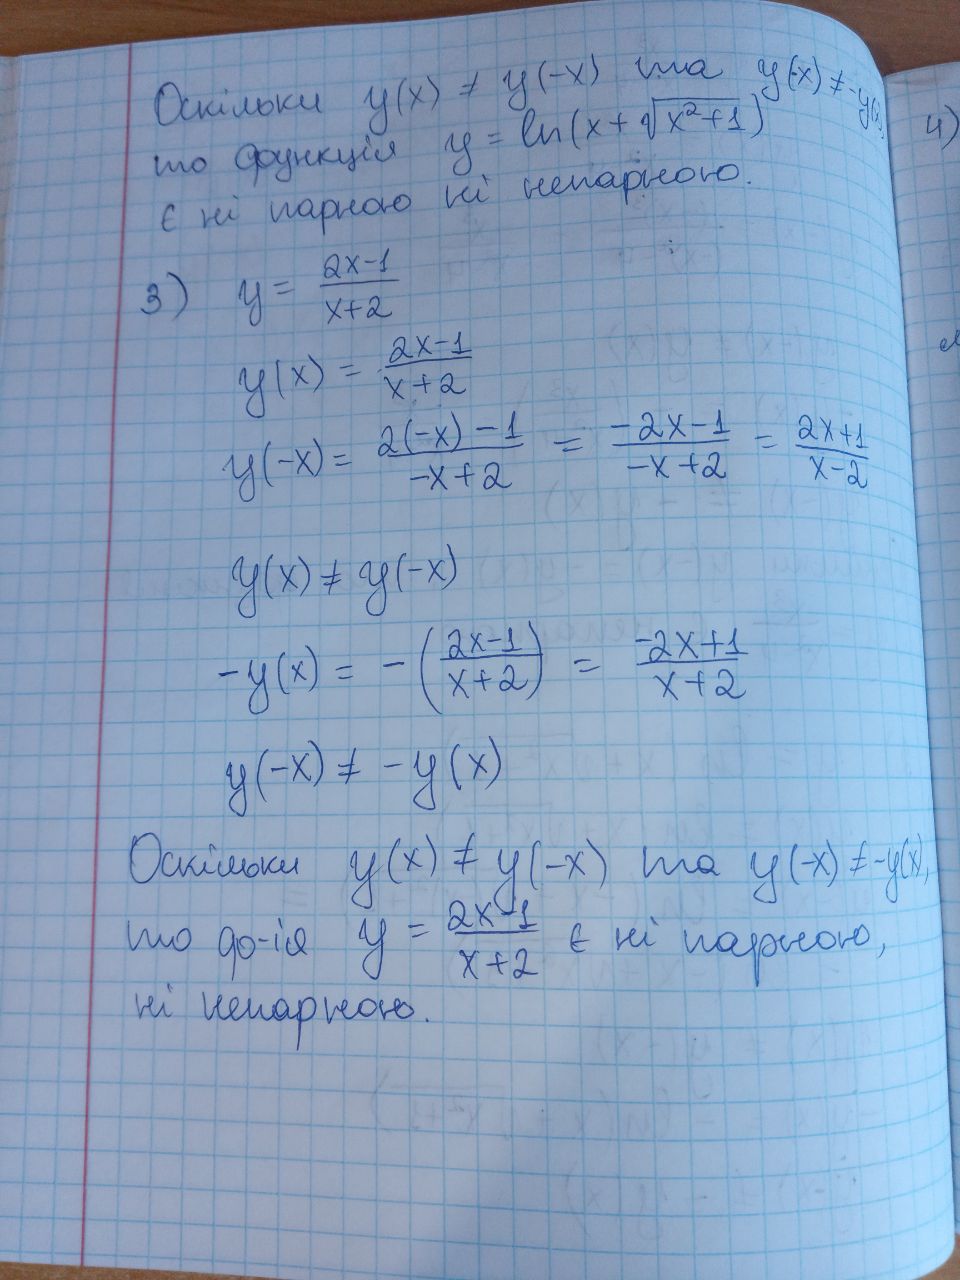 Оскільки y(x) ≠ y(-x) та y(-x) ≠ -y(x),
то функція y = ln(x + √(x²+1))
є ні парною ні непарною.
3) y = (2x-1)/(x+2)
y(x) = (2x-1)/(x+2)
y(-x) = (2(-x)-1)/(-x+2) = (-2x-1)/(-x+2) = (2x+1)/(x-2)
y(x) ≠ y(-x)
-y(x) = -((2x-1)/(x+2)) = (-2x+1)/(x+2)
y(-x) ≠ -y(x)
Оскільки y(x) ≠ y(-x) та y(-x) ≠ -y(x),
то ф-ія y = (2x-1)/(x+2) є ні парною,
ні непарною.
4)